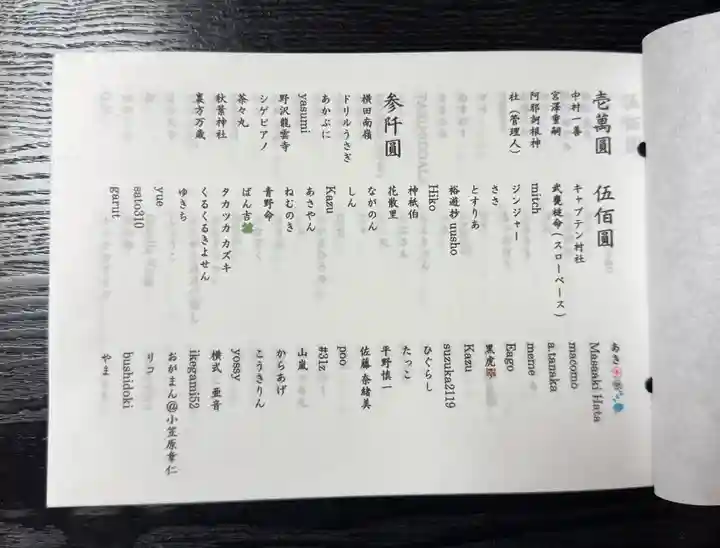 壱萬圓
中村一善
宮澤重嗣
阿耶訶根神
社(管理人)
参阡圓
横田南嶺
ドリルうさぎ
あかぶに
yasumi
野沢龍雲寺
シゲピアノ
茶々丸
秋葉神社
裏方万歳
伍佰圓
キャプテン村社
武甕槌命(スローペース)
mitch
ジンジャー
ささ
とすりあ
裕遊抄 uusho
Hiko
神祇伯
花散里
ながのん
しん
Kazu
あさやん
ねむのき
青野命
ばん吉🍀
タカツカ カズキ
くるくるきよせん
ゆきち
yue
sato310
garut
あき
Masaaki Hata
macomo
a.tanaka
meme
Eago
黒虎🐯
Kazu
suzuka2119
ひぐらし
たっこ
平野慎一
佐藤 奈緒美
poo
#31z
山嵐
からあげ
こうきりん
yossy
横式 亜音
ikegami52
おがまん@小笠原章仁
リコ
bushidoki
やま